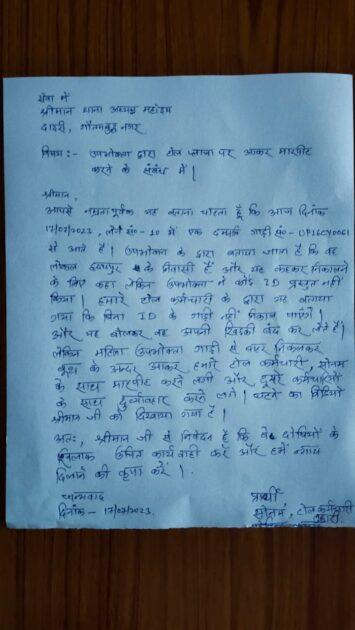 सेवा में
श्रीमान थाना अध्यक्ष महोदय
दादरी, गौतमबुद्ध नगर
विषय :- उपभोक्ता द्वारा टोल प्लाजा पर आकर मारपीट
करने के संबंध में।
श्रीमान,
आपसे नम्रतापूर्वक यह बताना चाहता हूँ कि आज दिनांक
17/07/2023, लेन सं०- 10 में एक दम्पति गाड़ी सं०- UP16CY0061
से आते हैं। उपभोक्ता के द्वारा बताया जाता है कि वह
लोकल के निवासी हैं और यह कहकर निकालने
के लिए कहा लेकिन उपभोक्ता ने कोई ID प्रस्तुत नहीं
किया। हमारे टोल कर्मचारी के द्वारा यह बताया
गया कि बिना ID के गाड़ी नहीं निकाल पाएंगे।
और यह बोलकर वह अपनी खिड़की बंद कर लेते हैं।
लेकिन महिला उपभोक्ता गाड़ी से बाहर निकलकर
बूथ के अन्दर आकर हमारे टोल कर्मचारी, सोनम
के साथ मारपीट करने लगी और दूसरे कर्मचारियों
के साथ दुर्व्यवहार करने लगी। घटना का विडियो
श्रीमान जी को दिखाया गया है।
अतः, श्रीमान जी से निवेदन है कि दोषियों के
खिलाफ उचित कार्यवाही करें और हमें न्याय
दिलाने की कृपा करें।
धन्यवाद
दिनांक - 17/07/2023.
प्रार्थी
सोनम, टोल कर्मचारी